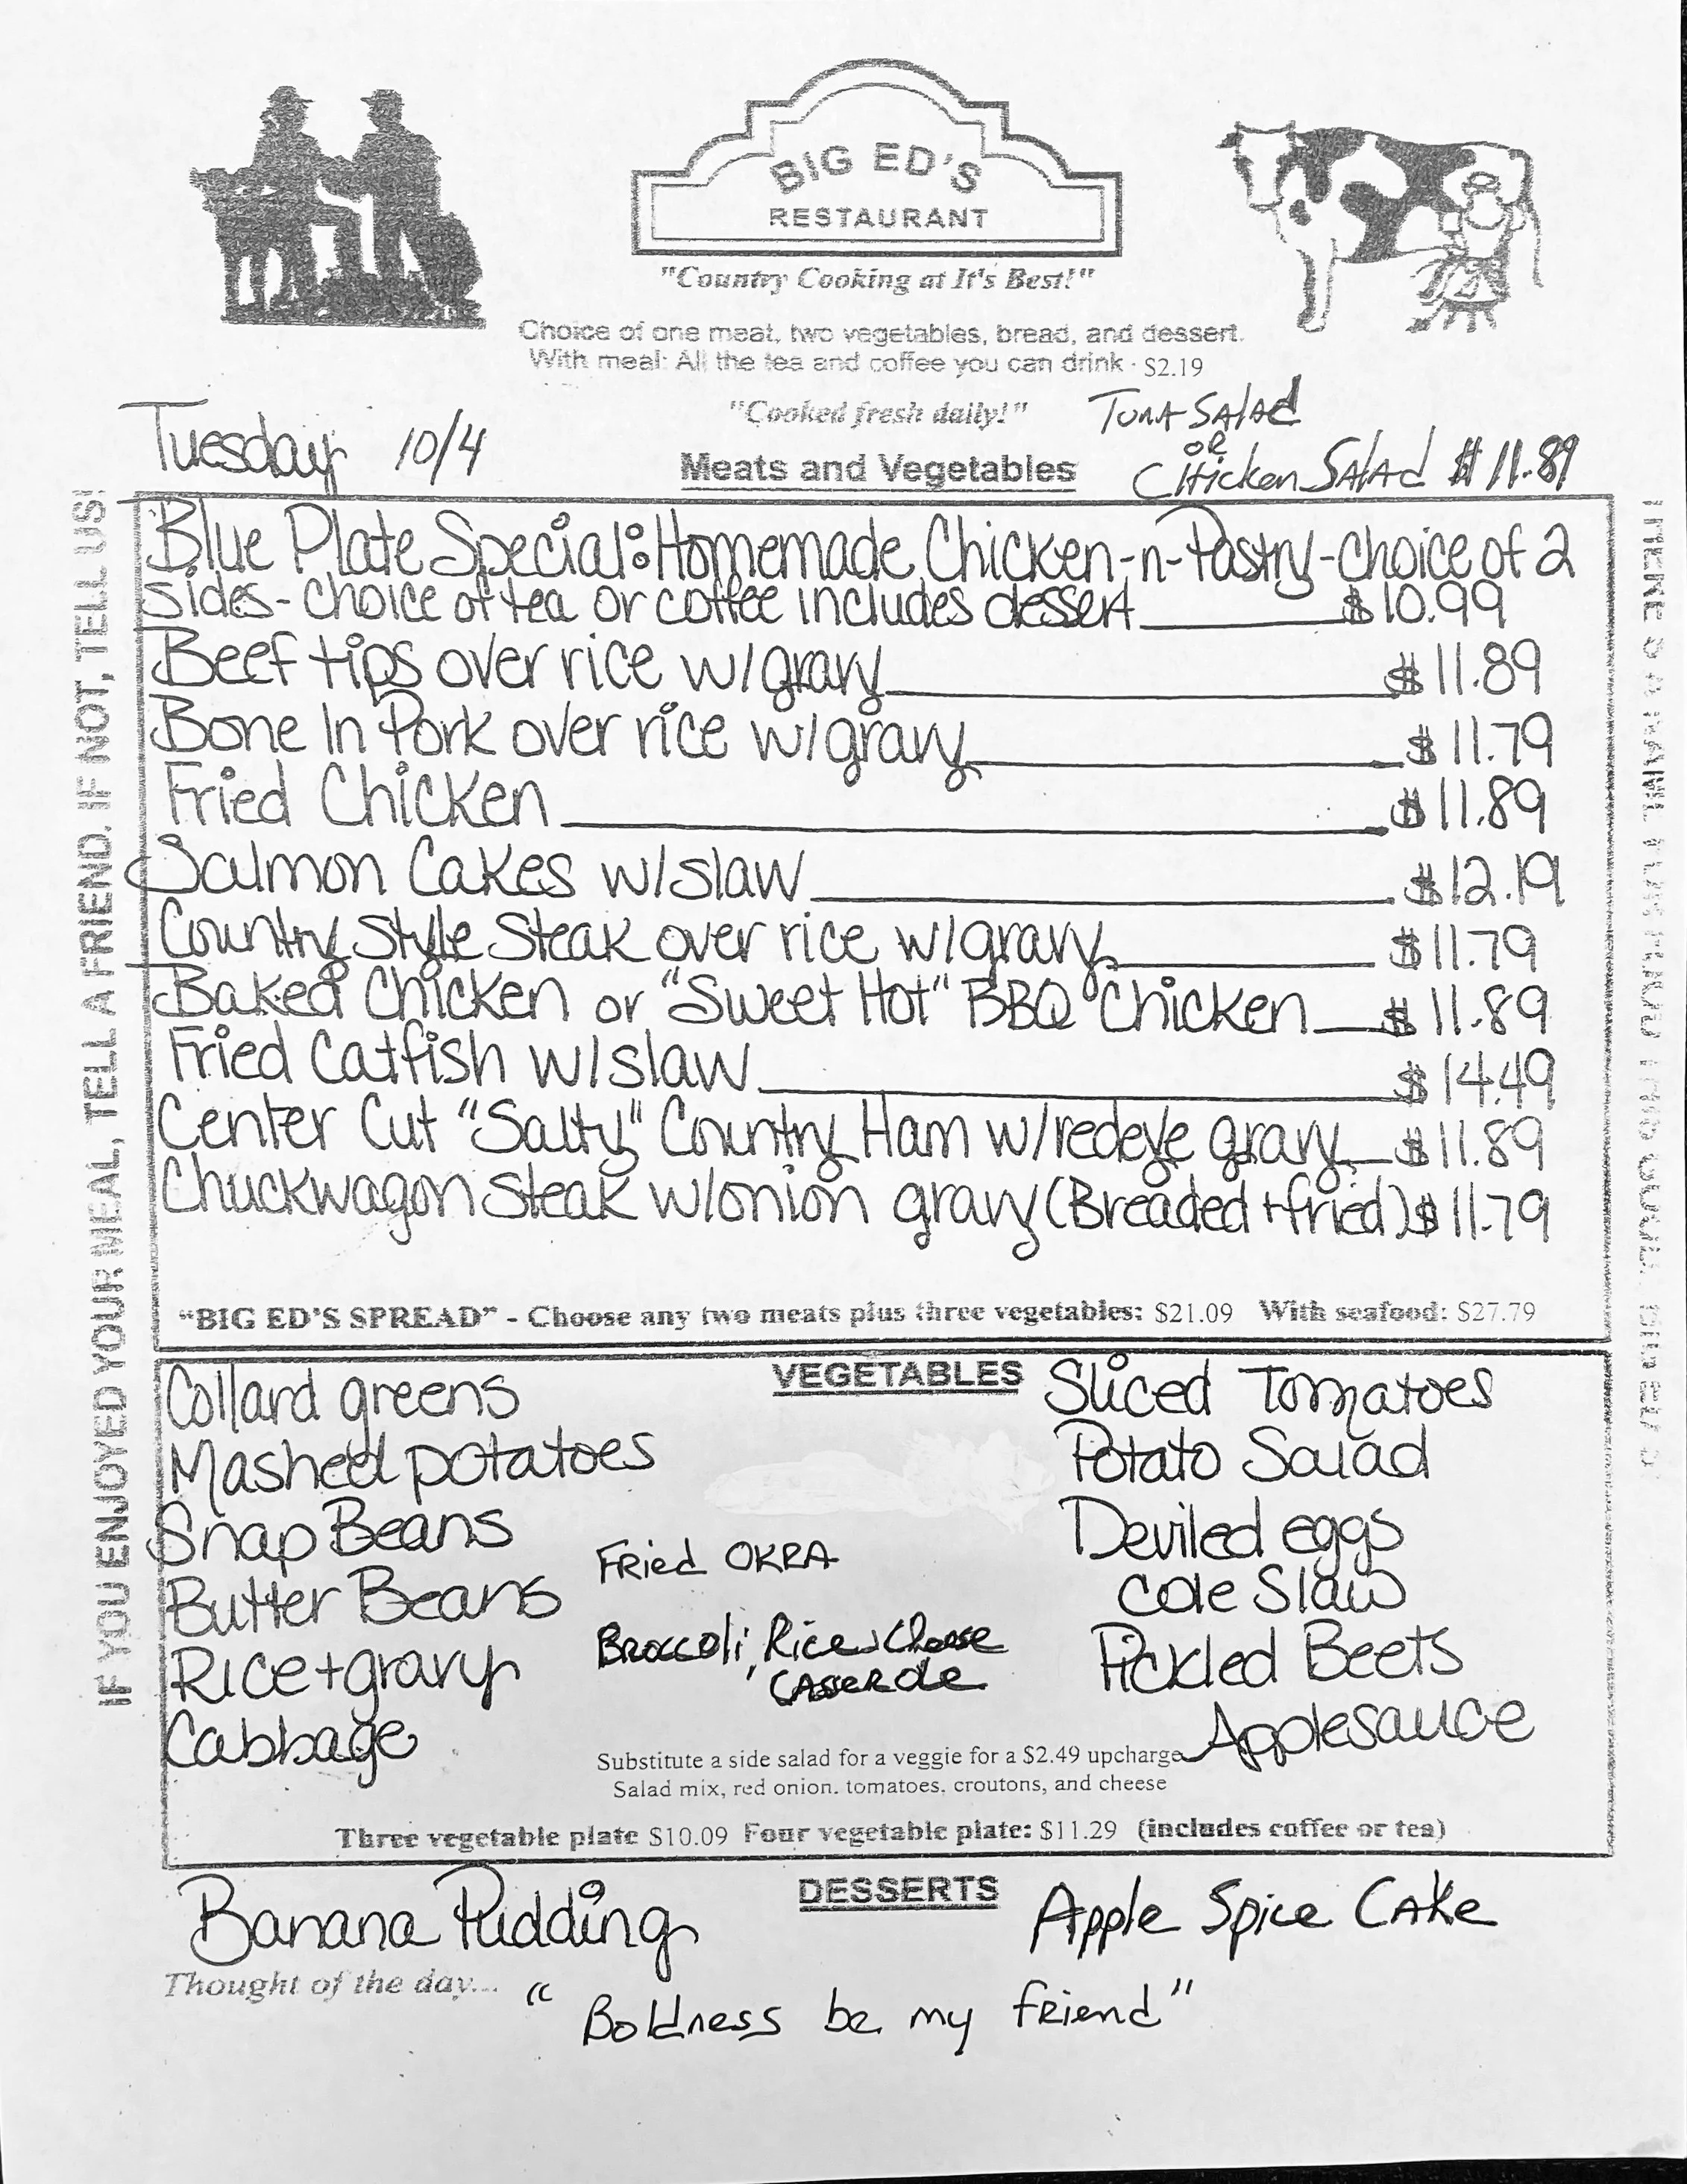 BIG ED'S
RESTAURANT
"Country Cooking at It's Best!"
Choice of one meat, two vegetables, bread, and dessert.
With meal: All the tea and coffee you can drink - $2.19
"Cooked fresh daily!"
Tuna Salad
or
Chicken Salad $11.89
Tuesday 10/4
Meats and Vegetables
Blue Plate Special: Homemade Chicken-n-Pastry-choice of 2
sides - choice of tea or coffee includes dessert $10.99
Beef tips over rice w/gravy $11.89
Bone In Pork over rice w/gravy $11.79
Fried Chicken $11.89
Salmon Cakes w/slaw $12.19
Country Style Steak over rice w/gravy $11.79
Baked Chicken or "Sweet Hot" BBQ Chicken $11.89
Fried Catfish w/slaw $14.49
Center Cut "Salty" Country Ham w/redeye gravy $11.89
Chuckwagon Steak w/onion gravy (Breaded + fried) $11.79
"BIG ED'S SPREAD" - Choose any two meats plus three vegetables: $21.09 With seafood: $27.79
VEGETABLES
Collard greens
Mashed potatoes
Snap Beans
Butter Beans
Rice + gravy
Cabbage
Fried OKRA
Broccoli, Rice + Cheese
Caserole
Sliced Tomatoes
Potato Salad
Deviled eggs
Cole Slaw
Pickled Beets
Applesauce
Substitute a side salad for a veggie for a $2.49 upcharge
Salad mix, red onion, tomatoes, croutons, and cheese
Three vegetable plate $10.09 Four vegetable plate: $11.29 (includes coffee or tea)
DESSERTS
Banana Pudding
Apple Spice Cake
Thought of the day... "Boldness be my friend"
IF YOU ENJOYED YOUR MEAL, TELL A FRIEND. IF NOT, TELL US!